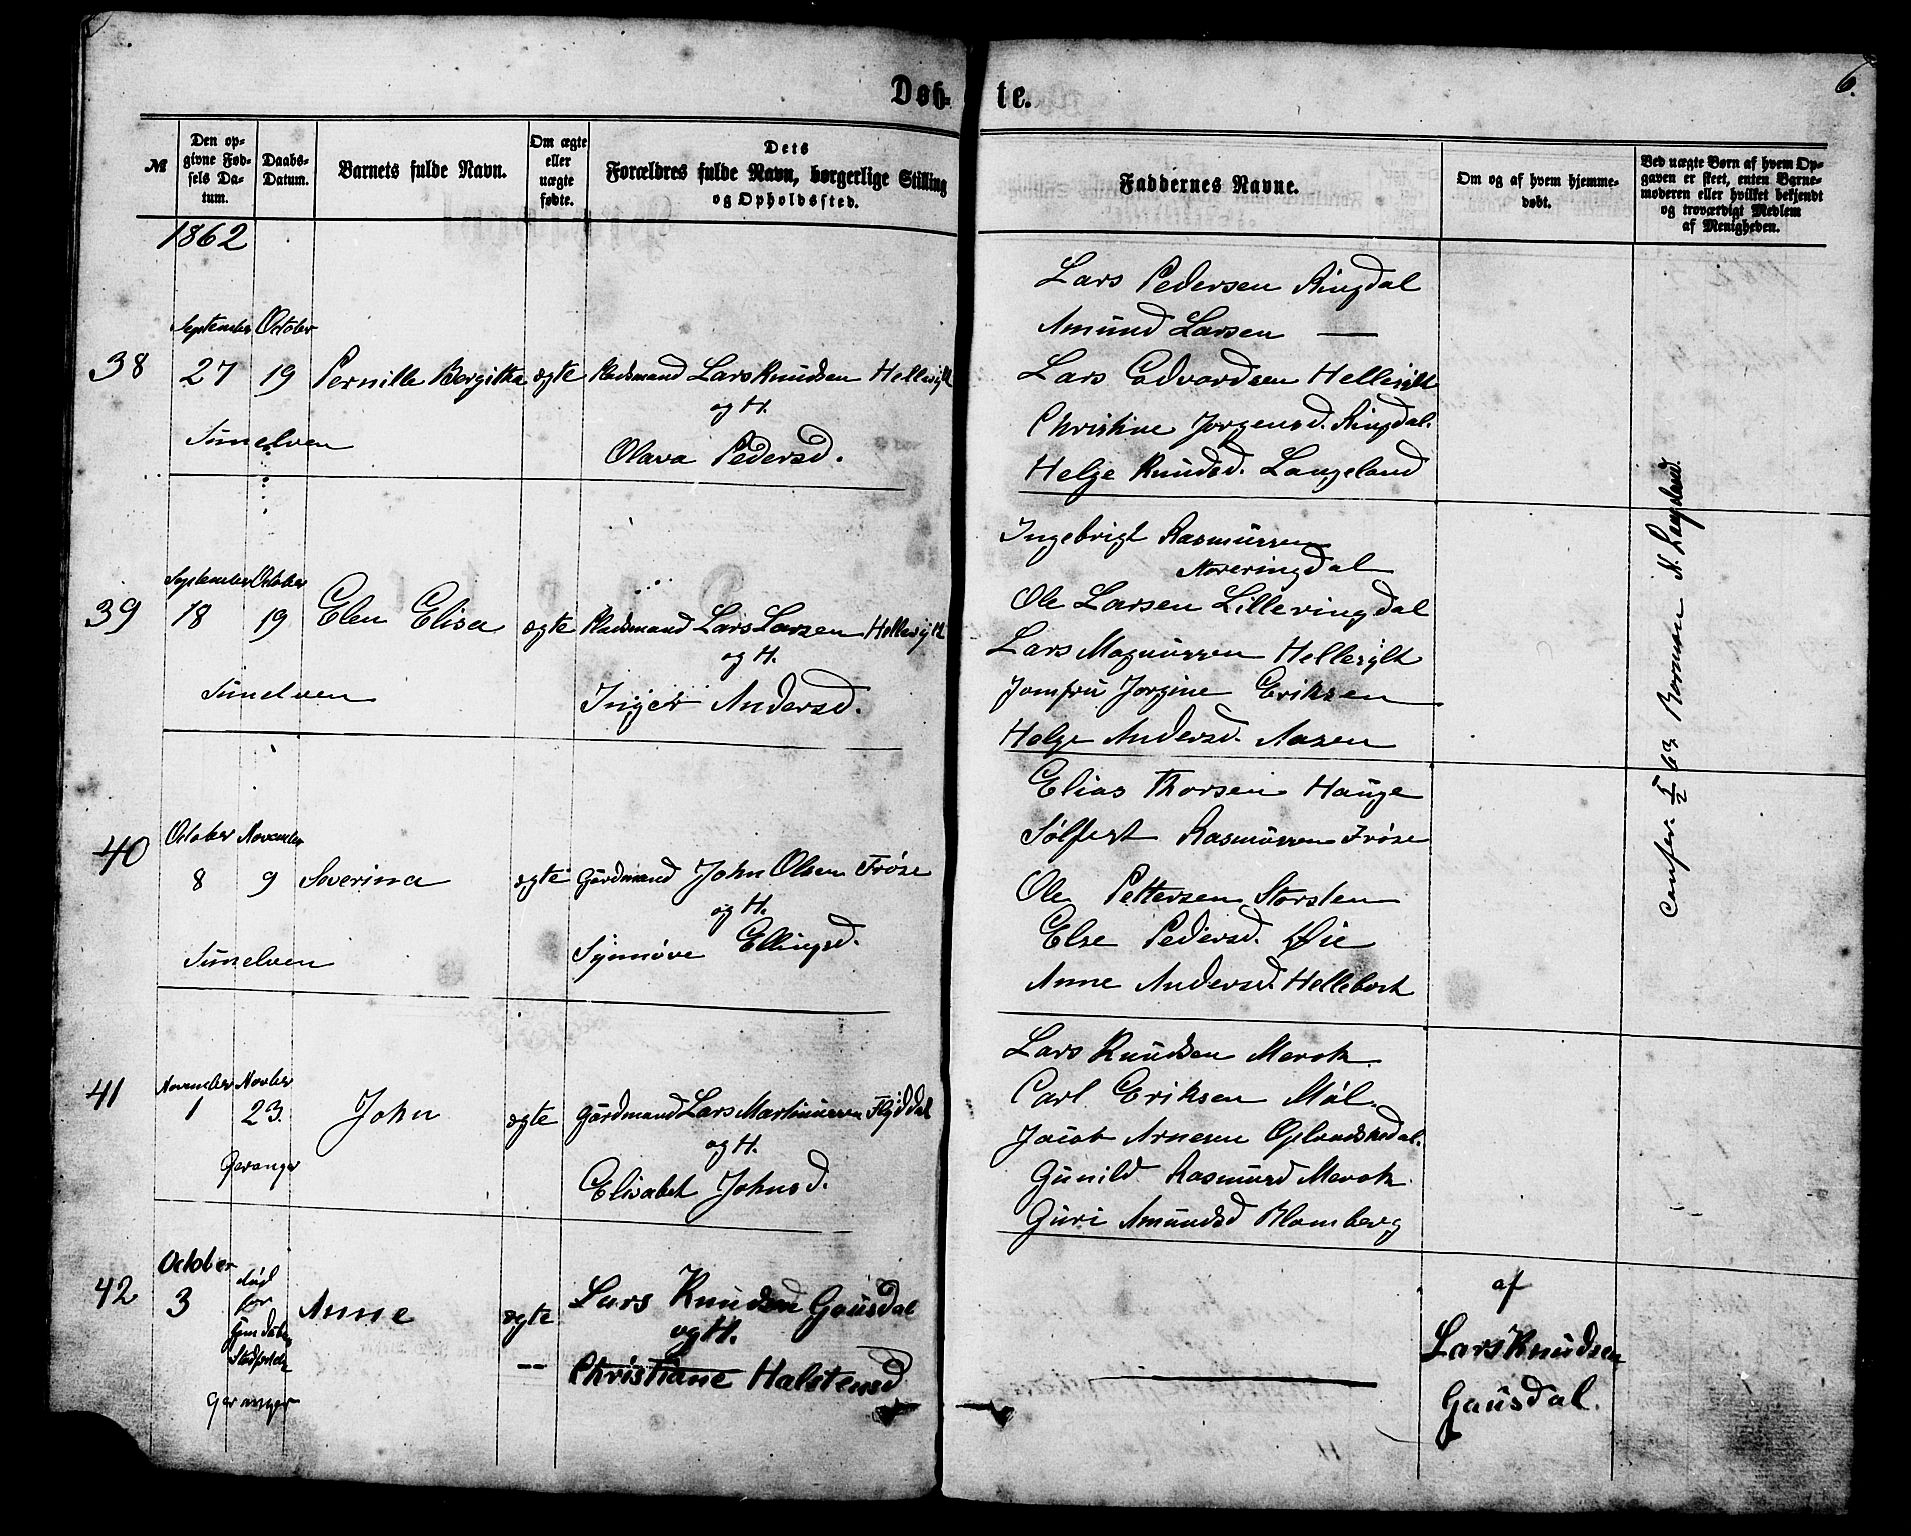 6.
Døb- te.
M
Den op-
givne Fød-
sels Da-
tum.
Daabs-
Datum.
Barnets fulde Navn.
Om ægte
eller
uægte
fødte.
Dets
Forældres fulde Navn, borgerlige Stilling
og Opholdssted.
Faddernes Navne.
Om og af hvem hjemme-
døbt.
Ved uægte Børn af hvem Op-
gaven er skeet, enten Barne-
moderen eller hvilket bekjendt
og troværdigt Medlem
af Menigheden.
1862
38
September
27
October
19
Sunelven
Pernille Bergitha
ægte
Pladsmand Lars Knudsen Hellesylt
og H.
Olava Pedersd.
Lars Pedersen Ringdal
Amund Larsen —
Lars Edvardsen Hellesylt
Christine Jørgensd. Ringdal.
Helge Knudsd. Langeland
39
September
18
October
19
Sunelven
Elen Elisa
ægte
Pladsmand Lars Larsen Hellesylt
og H.
Inger Andersd.
Ingebrigt Rasmussen
Storeringdal
Ole Larsen Lilleringdal
Lars Magnussen Hellesylt
Jomfru Jorgine Eriksen
Helge Andersd. Aasen
40
October
8
November
9
Sunelven
Severina
ægte
Gårdmand John Olsen Frøse
og H.
Synnøve Ellingsd.
Elias Thorsen Hauge
Sølfest Rasmussen Frøse
Ole Pettersen Storsten
Else Pedersd. Øie
Anne Andersd. Hellebost
41
November
1
Novber
23.
Geranger
John
ægte
Gårdmand Lars Martinussen Flyddal
og H.
Elisabet Johnsd.
Lars Knudsen Merok
Carl Eriksen Møl.
Jacob Arnesen Opland
Gunild Rasmusd Merok.
Guri Amundsd Blomberg
42
October
3
død
for
Stadfestelse
Geranger
Anne
ægte
--
Lars Knudsen Gausdal
og H.
Christiane Halstensd
af
Lars Knudsen
Gausdal.